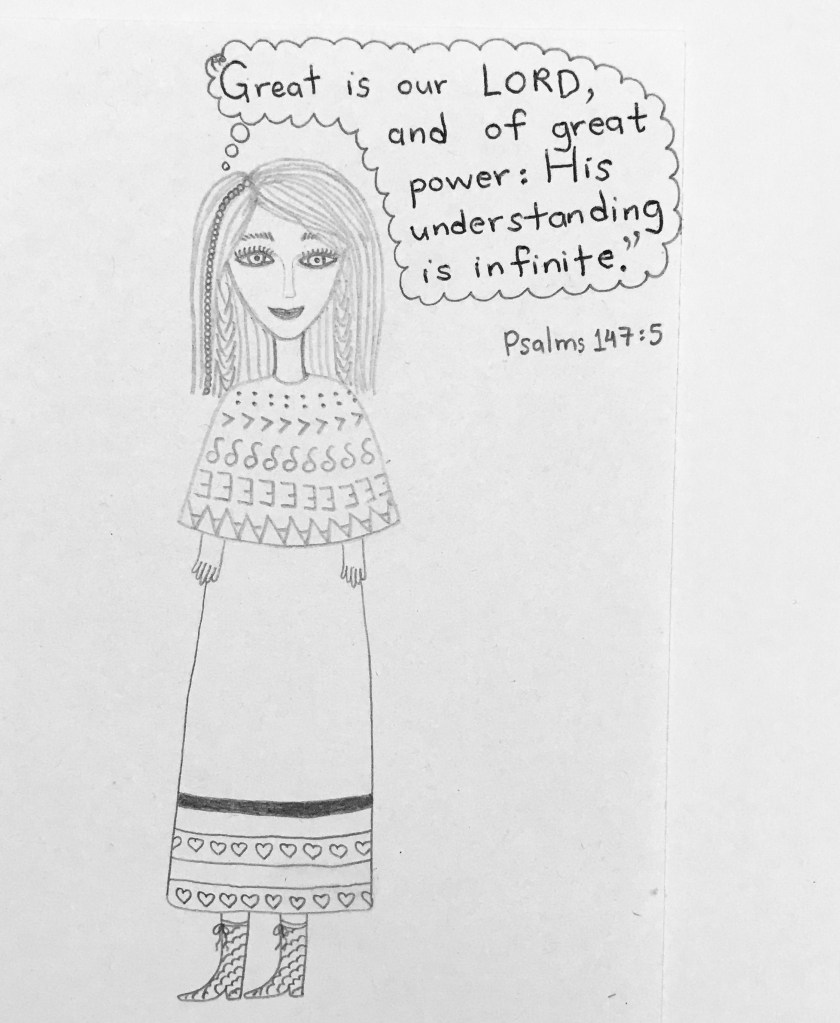 “Great is our LORD,
and of great
power: His
understanding
is infinite.”
Psalms 147:5